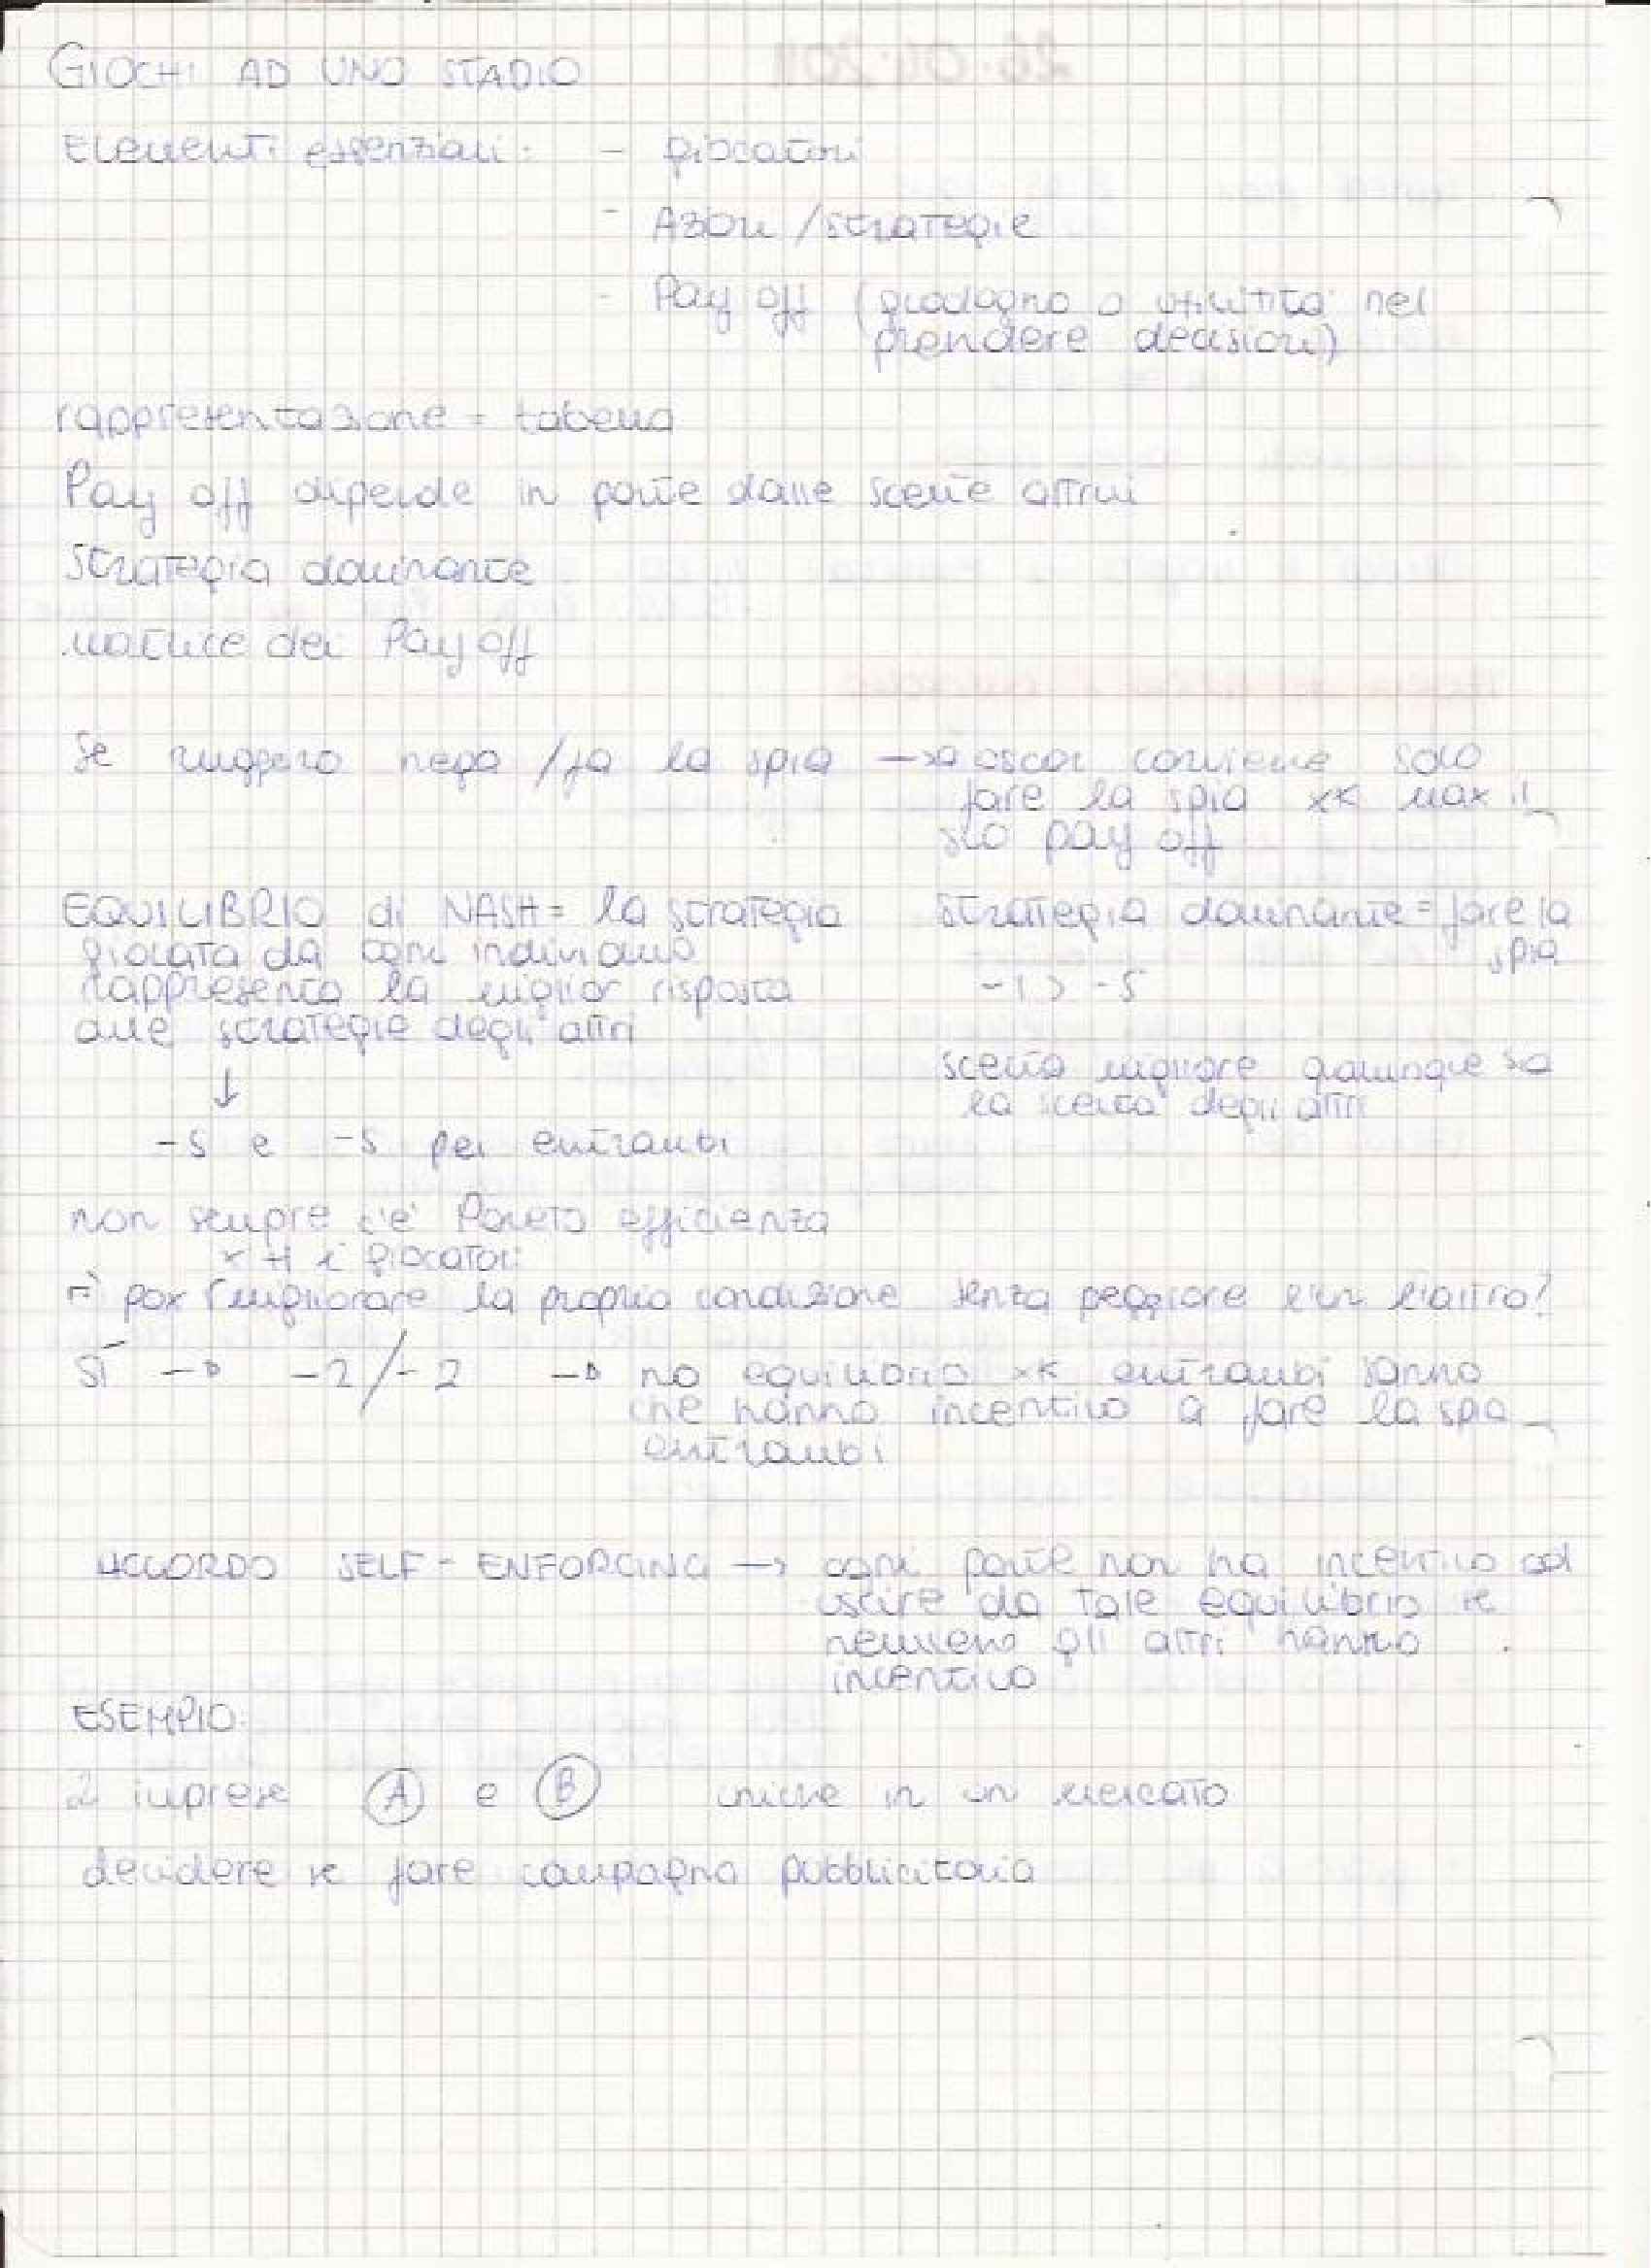 GIOCHI AD UNO STADIO
Elementi essenziali: - giocatori
- Azioni / strategie
- Pay off (guadagno o utilità nel
prendere decisioni)
rappresentazione = tabella
Pay off dipende in parte dalle scelte altrui
Strategia dominante
matrice dei Pay off
Se ruggero nega / fa la spia → a oscar conviene solo
fare la spia xk max il
suo pay off
EQUILIBRIO di NASH = la strategia
giocata da ogni individuo
rappresenta la miglior risposta
alle strategie degli altri
↓
-5 e -5 per entrambi
Strategia dominante = fare la
spia
-1 > -5
scelta migliore qualunque sia
la scelta degli altri
non sempre c'è Pareto efficienza
x tt i giocatori
migliorare la propria condizione senza peggiorare l'altro?
Sì → -2/-2 → no equilibrio xk entrambi sanno
che hanno incentivo a fare la spia
entrambi
ACCORDO SELF-ENFORCING → ogni parte non ha incentivo ad
uscire da tale equilibrio se
nemmeno gli altri hanno
incentivo
ESEMPIO:
2 imprese A e B uniche in un mercato
decidere se fare campagna pubblicitaria